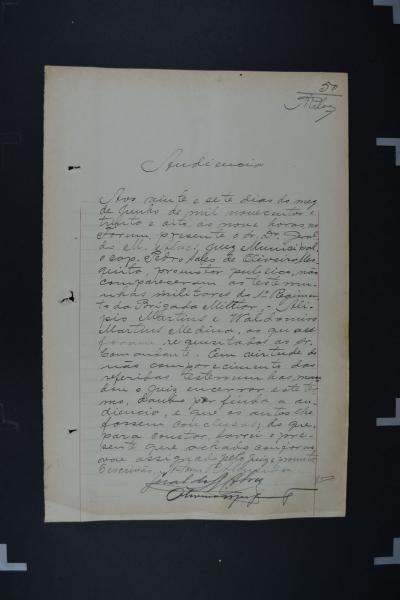 50
Audiencia
Aos vinte e sete dias do mez
de Junho de mil novecentos e
trinta e oito, as nove horas, no
Forum, presente o sr. Dr. Geral
do M. Juiz Municipal,
e cap. Pedro Sales de Oliveira Mes
quita, promotor publico, não
compareceram as testemu
nhas militares do 1º Regimen
to da Brigada Militar,
pio Martins e Waldomiro
Martins Medina, as que
foram requisitados ao sr.
Comandante. Em virtude do
não comparecimento das
referidas testemunhas, man
dou o Juiz encerrar este ter
mo, dando por finda a au
diencia, e que os autos lhe
fossem conclusos; do que,
para constar, lavrei o pre-
sente que achado conforme,
vae assignado pelo Juiz e promotor
Escrivão,
Geraldo